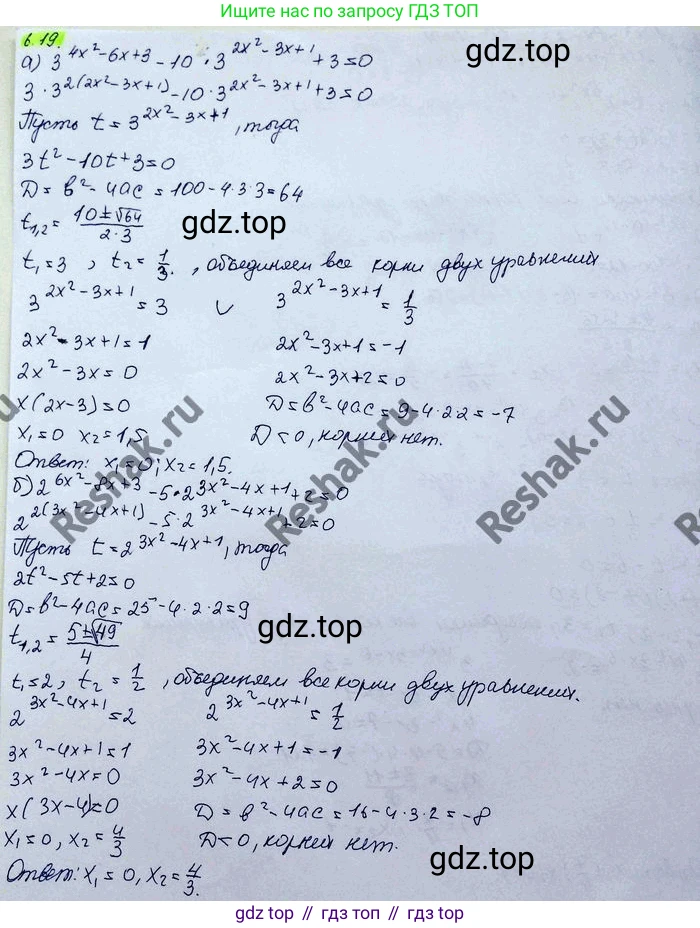 Ищите нас по запросу ГДЗ ТОП
6.19.
а) 3^{4x²-6x+3} - 10 · 3^{2x²-3x+1} + 3 = 0
3 · 3^{2(2x²-3x+1)} - 10 · 3^{2x²-3x+1} + 3 = 0
Пусть t = 3^{2x²-3x+1}, тогда
3t² - 10t + 3 = 0
D = b² - 4ac = 100 - 4·3·3 = 64
t₁,₂ = (10 ± √64)/(2·3)
gdz.top
t₁ = 3, t₂ = 1/3. , объединяем все корни двух уравнений
3^{2x²-3x+1} = 3 ∨ 3^{2x²-3x+1} = 1/3
2x² - 3x + 1 = 1 2x² - 3x + 1 = -1
2x² - 3x = 0 2x² - 3x + 2 = 0
x(2x-3) = 0 D = b² - 4ac = 9 - 4·2·2 = -7
x₁ = 0 x₂ = 1,5 D < 0, корней нет.
Ответ: x₁ = 0; x₂ = 1,5.
Reshak.ru
Reshak.ru
Reshak.ru
б) 2^{6x²-8x+3} - 5·2^{3x²-4x+1} + 2 = 0
2^{2(3x²-4x+1)} - 5·2^{3x²-4x+1} + 2 = 0
Пусть t = 2^{3x²-4x+1}, тогда
2t² - 5t + 2 = 0
D = b² - 4ac = 25 - 4·2·2 = 9
t₁,₂ = (5 ± √49)/4
gdz.top
t₁ = 2, t₂ = 1/2 , объединяем все корни двух уравнений.
2^{3x²-4x+1} = 2 2^{3x²-4x+1} = 1/2
3x² - 4x + 1 = 1 3x² - 4x + 1 = -1
3x² - 4x = 0 3x² - 4x + 2 = 0
x(3x-4) = 0 D = b² - 4ac = 16 - 4·3·2 = -8
x₁ = 0, x₂ = 4/3 D < 0, корней нет.
Ответ: x₁ = 0, x₂ = 4/3.
gdz.top
gdz.top // гдз топ // гдз.top